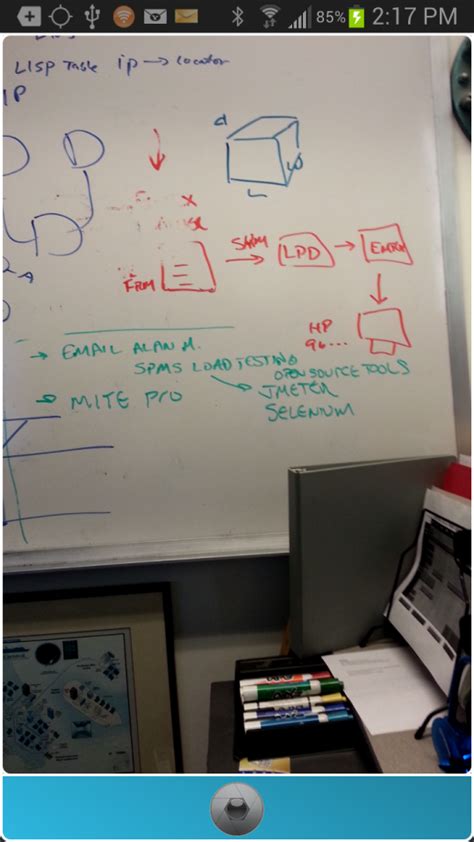 85% 2:17 PM
LISP Table ip → locator
IP
d
W
L
X
FRM
LPD
HP
96...
→ EMAIL ALAN M.
SPMS LOAD TESTING
OPEN SOURCE TOOLS
→ MITE PRO
JMETER
SELENIUM